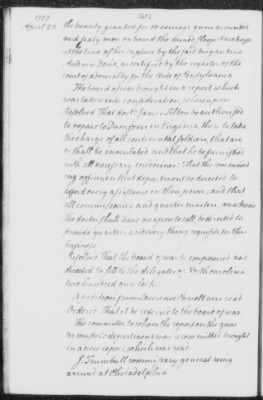 1777
April 23
the bounty granted for to cannon
and sixty men on board the armed sloop Racehorse
at the time of her capture by the said brigantine
Andrew Doria, as certified by the register of the
court of admiralty for the State of Pensylvania
The board of war brought in a report, which
was taken into consideration, whereupon
Resolved That doctr James Tilton be authorised
to repair to Dumfries in Virginia, there to take
the charge of all continental soldiers, that are
or shall be inoculated and that he be furnished
with all necessary medicines: That the command
ing officer in that department be directed to
afford every assistance in their power; and that
all commissaries and quarter masters, on whom
the doctor shall have occasion to call be directed to
provide quarters and every thing requisite for this
business.
Resolved That the board of war be empowered and
directed to sell to the delegates of North carolina
two hundred
A petition from was read
Ordered That it be referred to the board of war.
The committee to whom the report on the quar
ter master's department was recommitted brought
in a new report, which was read
J. Trumbull commissary general being
arrived at Philadelphia